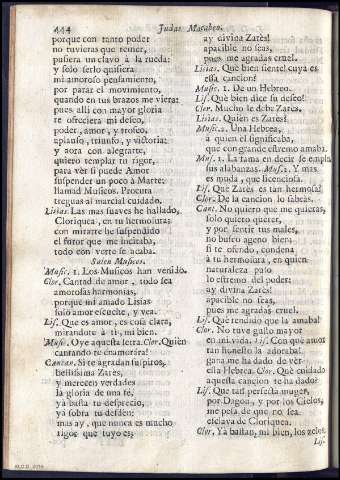 444
Judas Macabeo.
porque con tanto poder
no tuvieras que temer,
pusiera un clavo à la rueda:
y solo serlo quisiera
mi amoroso pensamiento,
por parar el movimiento,
quando en tus brazos me viera:
pues alli con mayor gloria
te ofreciera mi deseo,
poder, amor, y trofeo,
aplauso, triunfo, y victoria:
y aora con alegrarte,
quiero templar tu rigor,
para vèr si puede Amor
suspender un poco à Marte:
llamad Musicos. Procura
treguas al marcial cuidado.
Lisias. Las mas suaves he hallado,
Cloriquea, en tu hermosura:
con mirarte he suspendido
el furor que me incitaba,
todo con verte se acaba.
Salen Musicos.
Music. 1. Los Musicos han venido.
Clor. Cantad de amor, todo sea
amorosas harmonias,
porque mi amado Lisias
solo amor escuche, y vea.
Lis. Que es amor, es cosa clara,
mirandote à ti, mi bien.
Music. Oye aquesta letra. Clor. Quièn
cantando te enamorára!
Cantan. Si te agradan suspiros,
bellissima Zarès,
y merecen verdades
la gloria de una fè,
yà basta tu desprecio,
yà sobra tu desdèn:
mas ay, que nunca es mucho
rigor que tuyo es,
ay divina Zarès!
apacible no seas,
pues me agradas cruel.
Lisias. Què bien siente! cuya es
essa cancion?
Music. 1. De un Hebreo.
Lis. Què bien dice su deseo!
Clor. Mucho le debe Zarès.
Lisias. Quièn es Zarès?
Music. 2. Una Hebrea,
à quien el significaba,
que con grande estremo amaba.
Mus. 1. La fama en decir se emplea
sus alabanzas. Mus. 2. Y mas
es muda, que licenciosa.
Lis. Què Zarès es tan hermosa?
Clor. De la cancion lo sabràs.
Cant. No quiero que me quieras,
solo quiero querer,
y por sentir tus males,
no busco ageno bien:
si te ofendo, condena
à tu hermosura, en quien
naturaleza puso
lo estremo del poder:
ay divina Zarès!
apacible no seas,
pues me agradas cruel.
Lis. Què rendido que la amaba!
Clor. No tuve gusto mayor
en mi vida. Lis. Con què amor
tan honesto la adoraba!
gana me ha dado de vèr
essa Hebrea. Clor. Què cuidado
aquesta cancion te ha dado?
Lis. Que tan perfecta muger,
por Dagon, y por los Cielos,
me pesa de que no sea
esclava de Cloriquea.
Clor. Yà bastan, mi bien, los zelos.
Lis.